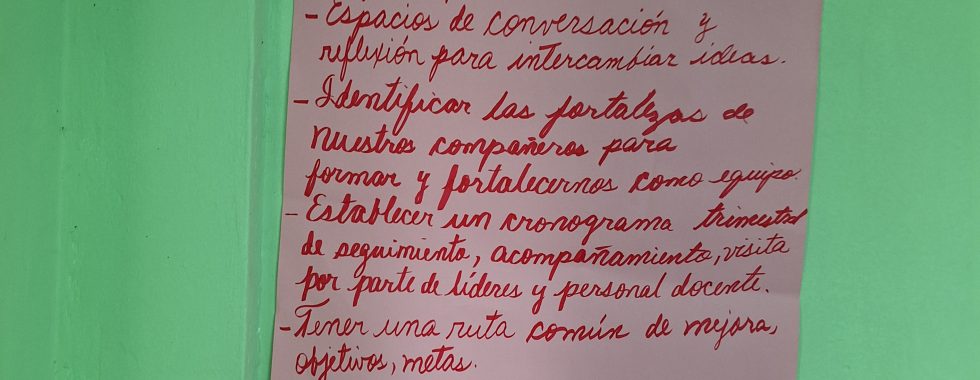 - Espacios de conversación y
reflexión para intercambiar ideas.
- Identificar las fortalezas de
nuestros compañeros para
formar y fortalecernos como equipo.
- Establecer un cronograma trimestral
de seguimiento, acompañamiento, visita
por parte de líderes y personal docente.
- Tener una ruta común de mejora,
objetivos, metas.